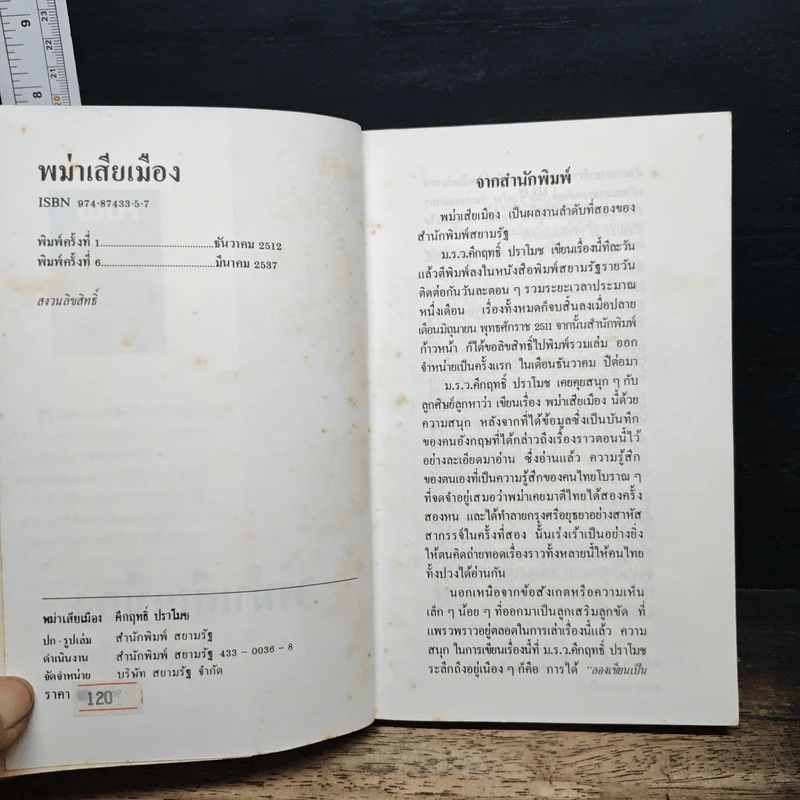 9
8
23
22
21
20
พม่าเสียเมือง
ISBN 974-87433-5-7
พิมพ์ครั้งที่ 1..............................ธันวาคม 2512
พิมพ์ครั้งที่ 6..............................มีนาคม 2537
สงวนลิขสิทธิ์
พม่าเสียเมือง คึกฤทธิ์ ปราโมช
ปก - รูปเล่ม สำนักพิมพ์ สยามรัฐ
ดำเนินงาน สำนักพิมพ์ สยามรัฐ 433-0036-8
จัดจำหน่าย บริษัท สยามรัฐ จำกัด
ราคา 120
จากสำนักพิมพ์
พม่าเสียเมือง เป็นผลงานลำดับที่สองของ
สำนักพิมพ์สยามรัฐ
ม.ร.ว.คึกฤทธิ์ ปราโมช เขียนเรื่องนี้ทีละวัน
แล้วตีพิมพ์ลงในหนังสือพิมพ์สยามรัฐรายวัน
ติดต่อกันวันละตอน ๆ รวมระยะเวลาประมาณ
หนึ่งเดือน เรื่องทั้งหมดก็จบสิ้นลงเมื่อปลาย
เดือนมิถุนายน พุทธศักราช 2511 จากนั้นสำนักพิมพ์
ก้าวหน้า ก็ได้ขอลิขสิทธิ์ไปพิมพ์รวมเล่ม ออก
จำหน่ายเป็นครั้งแรก ในเดือนธันวาคม ปีต่อมา
ม.ร.ว.คึกฤทธิ์ ปราโมช เคยคุยสนุก ๆ กับ
ลูกศิษย์ลูกหาว่า เขียนเรื่อง พม่าเสียเมือง นี้ด้วย
ความสนุก หลังจากที่ได้ข้อมูลซึ่งเป็นบันทึก
ของคนอังกฤษที่ได้กล่าวถึงเรื่องราวตอนนี้ไว้
อย่างละเอียดมาอ่าน ซึ่งอ่านแล้ว ความรู้สึก
ของตนเองที่เป็นความรู้สึกของคนไทยโบราณ ๆ
ที่จดจำอยู่เสมอว่าพม่าเคยมาตีไทยได้สองครั้ง
สองหน และได้ทำลายกรุงศรีอยุธยาอย่างสาหัส
สากรรจ์ในครั้งที่สอง นั้นเร่งเร้าเป็นอย่างยิ่ง
ให้ตนคิดถ่ายทอดเรื่องราวทั้งหลายนี้ให้คนไทย
ทั้งปวงได้อ่านกัน
นอกเหนือจากข้อสังเกตหรือความเห็น
เล็ก ๆ น้อย ๆ ที่ออกมาเป็นลูกเสริมลูกขัด ที่
แพรวพราวอยู่ตลอดในการเล่าเรื่องนี้แล้ว ความ
สนุก ในการเขียนเรื่องนี้ที่ ม.ร.ว.คึกฤทธิ์ ปราโมช
ระลึกถึงอยู่เนือง ๆ ก็คือ การได้ "ลองเขียนเป็น